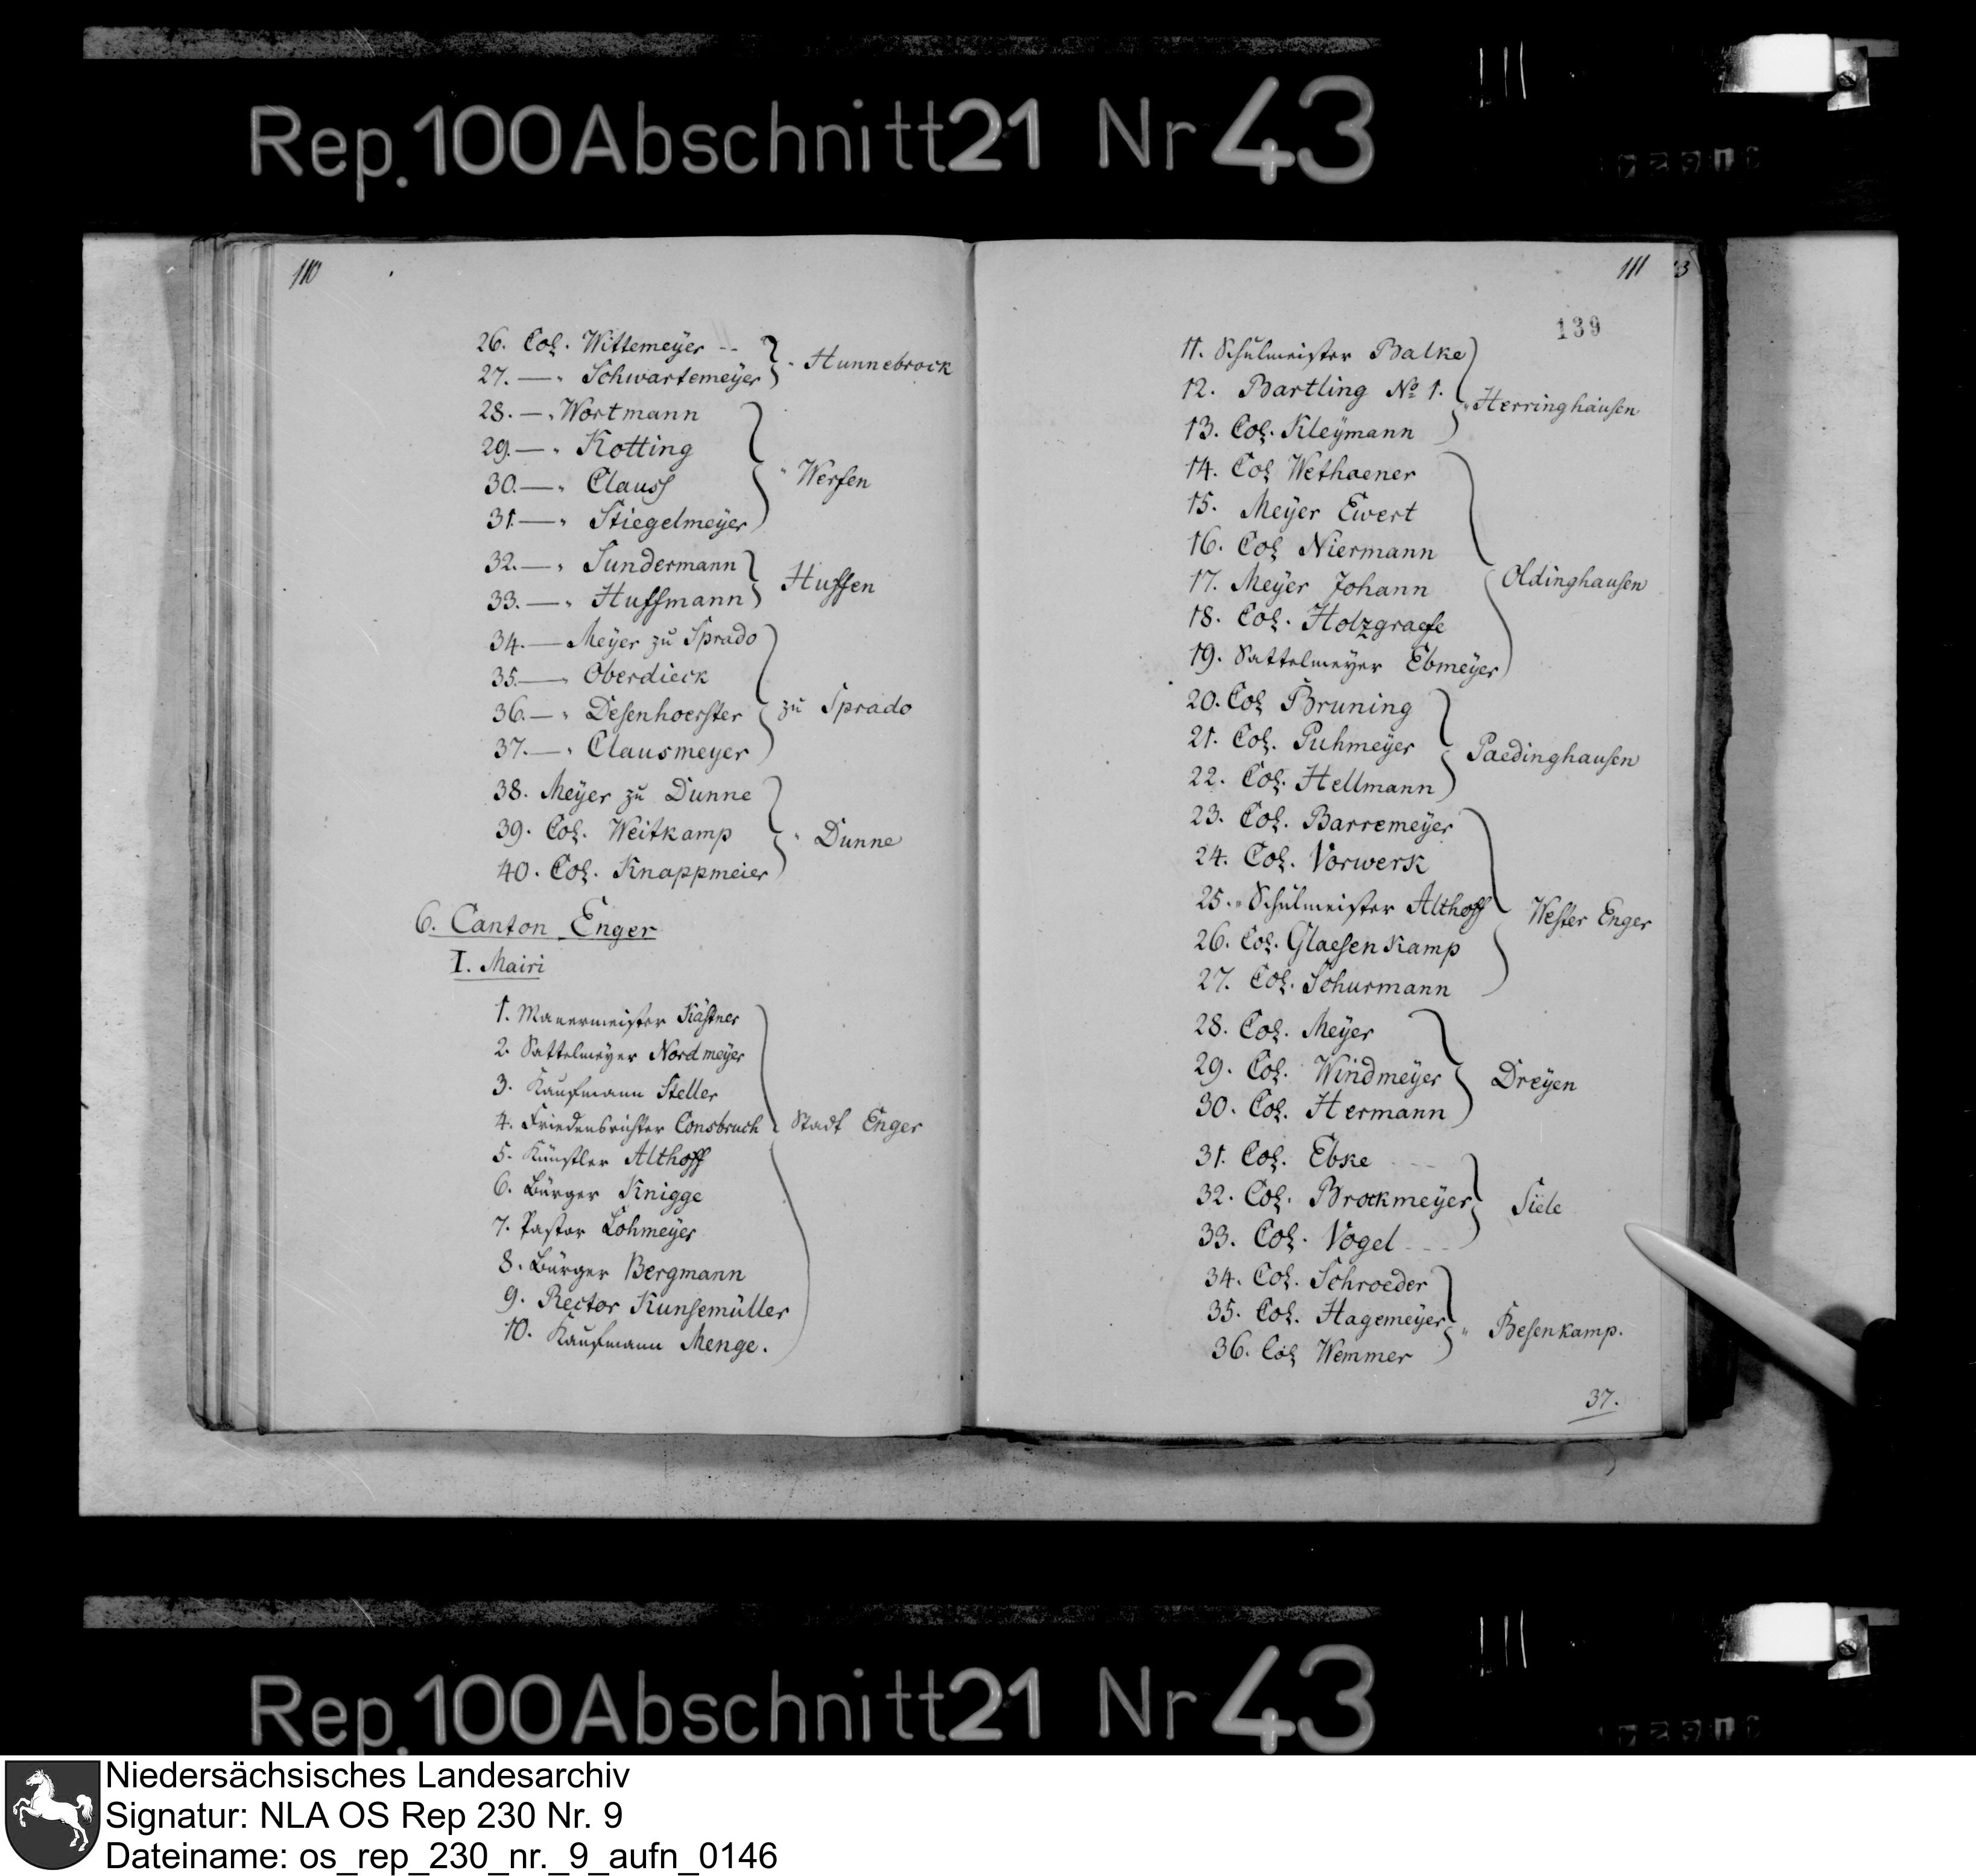 Rep. 100 Abschnitt 21 Nr 43
110
26. Col. Wittemeyer --
27. — " Schwartemeyer
Hunnebrock
28. — " Wortmann
29. — " Kotting
30. — " Clauss
31. — " Stiegelmeyer
Werfen
32. — " Sundermann
33. — " Huffmann
Huffen
34. — Meÿer zu Sprado
35. — " Oberdieck
36. — " Desenhoerster
37. — " Clausmeyer
zu Sprado
38. Meÿer zu Dunne
39. Col. Weitkamp
40. Col. Knappmeier
Dunne
6. Canton Enger
I. Mairi
1. Mauermeister Kästner
2. Sattelmeyer Nordmeyer
3. Kaufmann Steller
4. Friedensrichter Consbruch
5. Künstler Althoff
6. Bürger Knigge
7. Pastor Lohmeyer
8. Bürger Bergmann
9. Rector Kunsemüller
10. Kaufmann Menge.
Stadt Enger
111
139
11. Schulmeister Balke
12. Bartling No 1.
13. Col. Kleÿmann
Herringhausen
14. Col Wethaener
15. Meÿer Ewert
16. Col Niermann
17. Meÿer Johann
18. Col. Holzgraefe
19. Sattelmeyer Ebmeÿer
Oldinghausen
20. Col Bruning
21. Col. Puhmeÿer
22. Col. Hellmann
Paedinghausen
23. Col. Barremeÿer
24. Col. Vorwerk
25. Schulmeister Althoff
26. Col. Glaesenkamp
27. Col. Schurmann
Wester Enger
28. Col. Meÿer
29. Col. Windmeÿer
30. Col. Hermann
Dreÿen
31. Col. Ebke
32. Col. Brockmeÿer
33. Col. Vogel
Siele
34. Col. Schroeder
35. Col. Hagemeÿer
36. Col Wemmer
Besenkamp.
37.
Rep. 100 Abschnitt 21 Nr 43
Niedersächsisches Landesarchiv
Signatur: NLA OS Rep 230 Nr. 9
Dateiname: os_rep_230_nr._9_aufn_0146